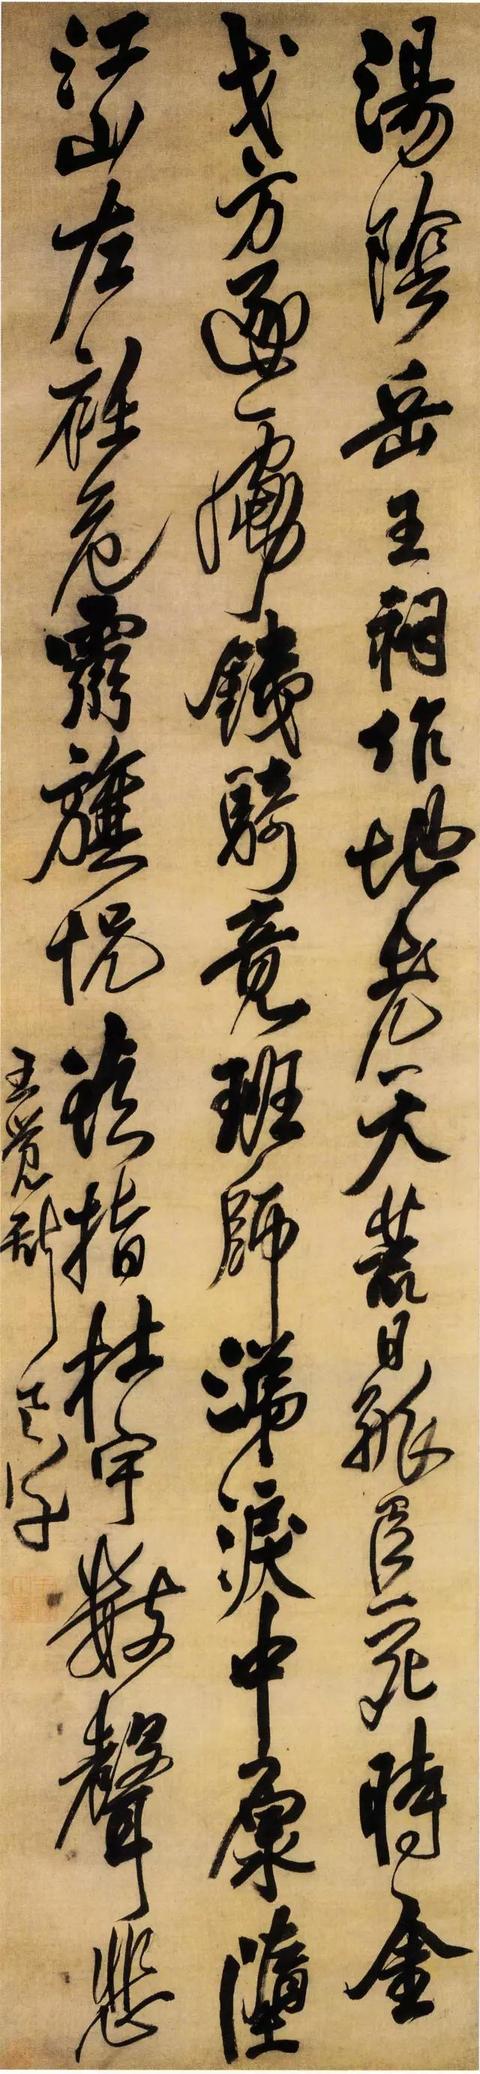 湯陰岳王祠作地老天荒日孤臣死時金
戈方逐虜鐵騎竟班師涕淚中原墮
江山左衽危靈旗怳疑指杜宇數聲悲
王覺斯